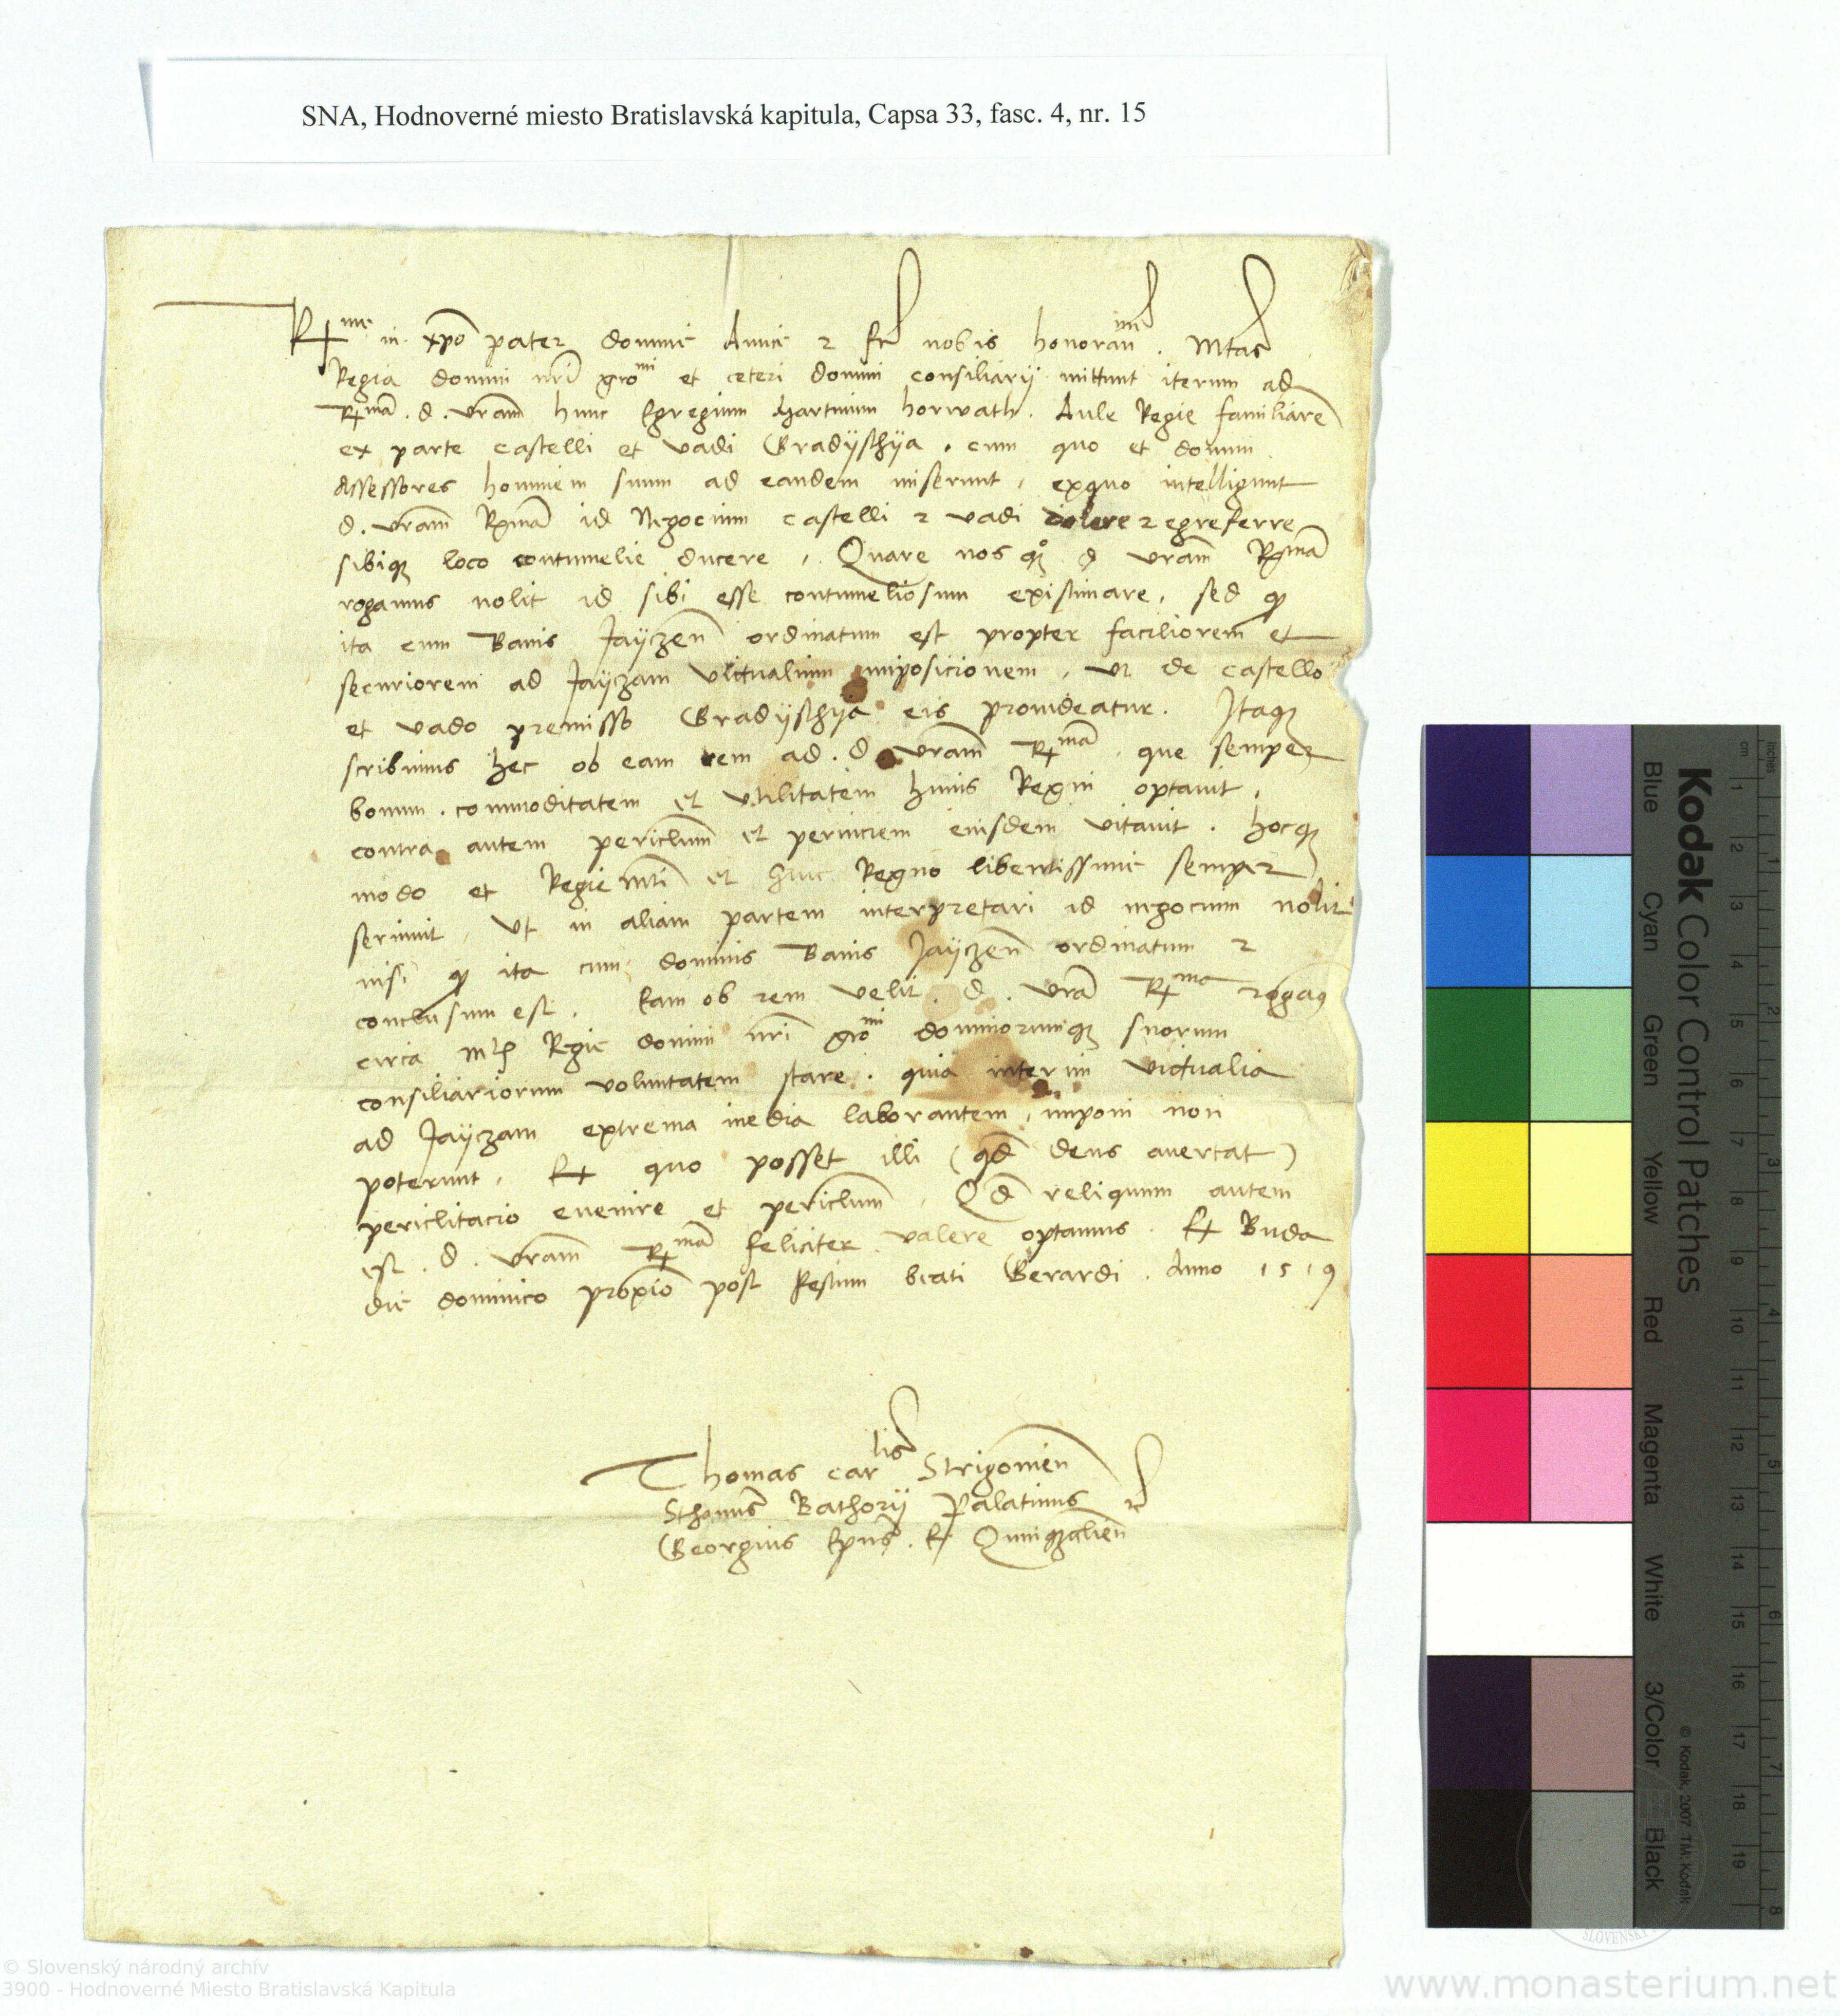 SNA, Hodnoverné miesto Bratislavská kapitula, Capsa 33, fasc. 4, nr. 15
Rme in xpo pater domine Amice et fr nobis honoran. Mtas
Regia domini nri gromi et ceteri domini consiliarij mittunt iterum ad
R.mam. d. vram hunc Egregium Martinum horwath. Aule Regie familiarem
ex parte castelli et vadi Gradÿschÿa. cum quo et domini
Assessores hominem suum ad eandem miserunt, exquo intelligunt
d. vram Rmam id Negocium castelli et vadi dolere et egreferre
sibiq loco contumelie ducere, Quare nos d vram Rmam
rogamus nolit id sibi esse contumeliosum existimare, sed q
ita cum Banis Jaÿczen ordinatum est propter faciliorem et
securiorem ad Jaÿczam victualium imposicionem, ut de castello
et vado premisso Gradÿschÿa eis prouideatur. Itaq
scribimus hec ob eam rem ad. d. vram Rmam. que semper
bonum. commoditatem et utilitatem huius Regni optauit,
contra autem periclum et perniciem eiusdem vitauit. hocq
modo et Regie Mti et huic Regno libentissime semper
seruiuit, Ut in aliam partem interpretari id negocium nolit
nisi q ita cum dominis Banis Jaÿczen ordinatum et
conclusum est. Eam ob rem velit. d. vra Rma rogamus
circa Mtis Regie domini nri gromi dominorumq suorum
consiliariorum voluntatem stare. quia interim victualia
ad Jaÿczam extrema inedia laborantem, imponi non
poterunt, Ex quo posset illi (qd deus auertat)
periclitacio euenire et periclum. Qd reliquum autem
est. d. vram Rmam feliciter valere optamus. Ex Buda
die dominico proxio post Festum beati Gerardi. Anno 1519
Thomas carlis Strigonien
Sthanus Bathorÿ Palatinus
Georgius Epus. E Quinqecclien
Kodak Color Control Patches
Blue Cyan Green Yellow Red Magenta White 3/Color Black
© Kodak, 2007 TM: Kodak
cm 1 2 3 4 5 6 7 8 9 10 11 12 13 14 15 16 17 18 19
inches 1 2 3 4 5 6 7 8
SLOVENSKÝ
© Slovenský národný archív
3900 - Hodnoverné Miesto Bratislavská Kapitula
www.monasterium.net